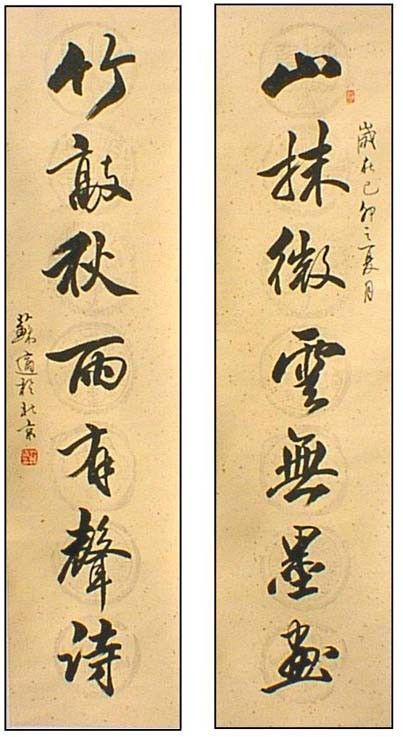 山抹微雲無墨畫
歲在己卯之夏月
竹敲秋雨有聲詩
蘇適於北京